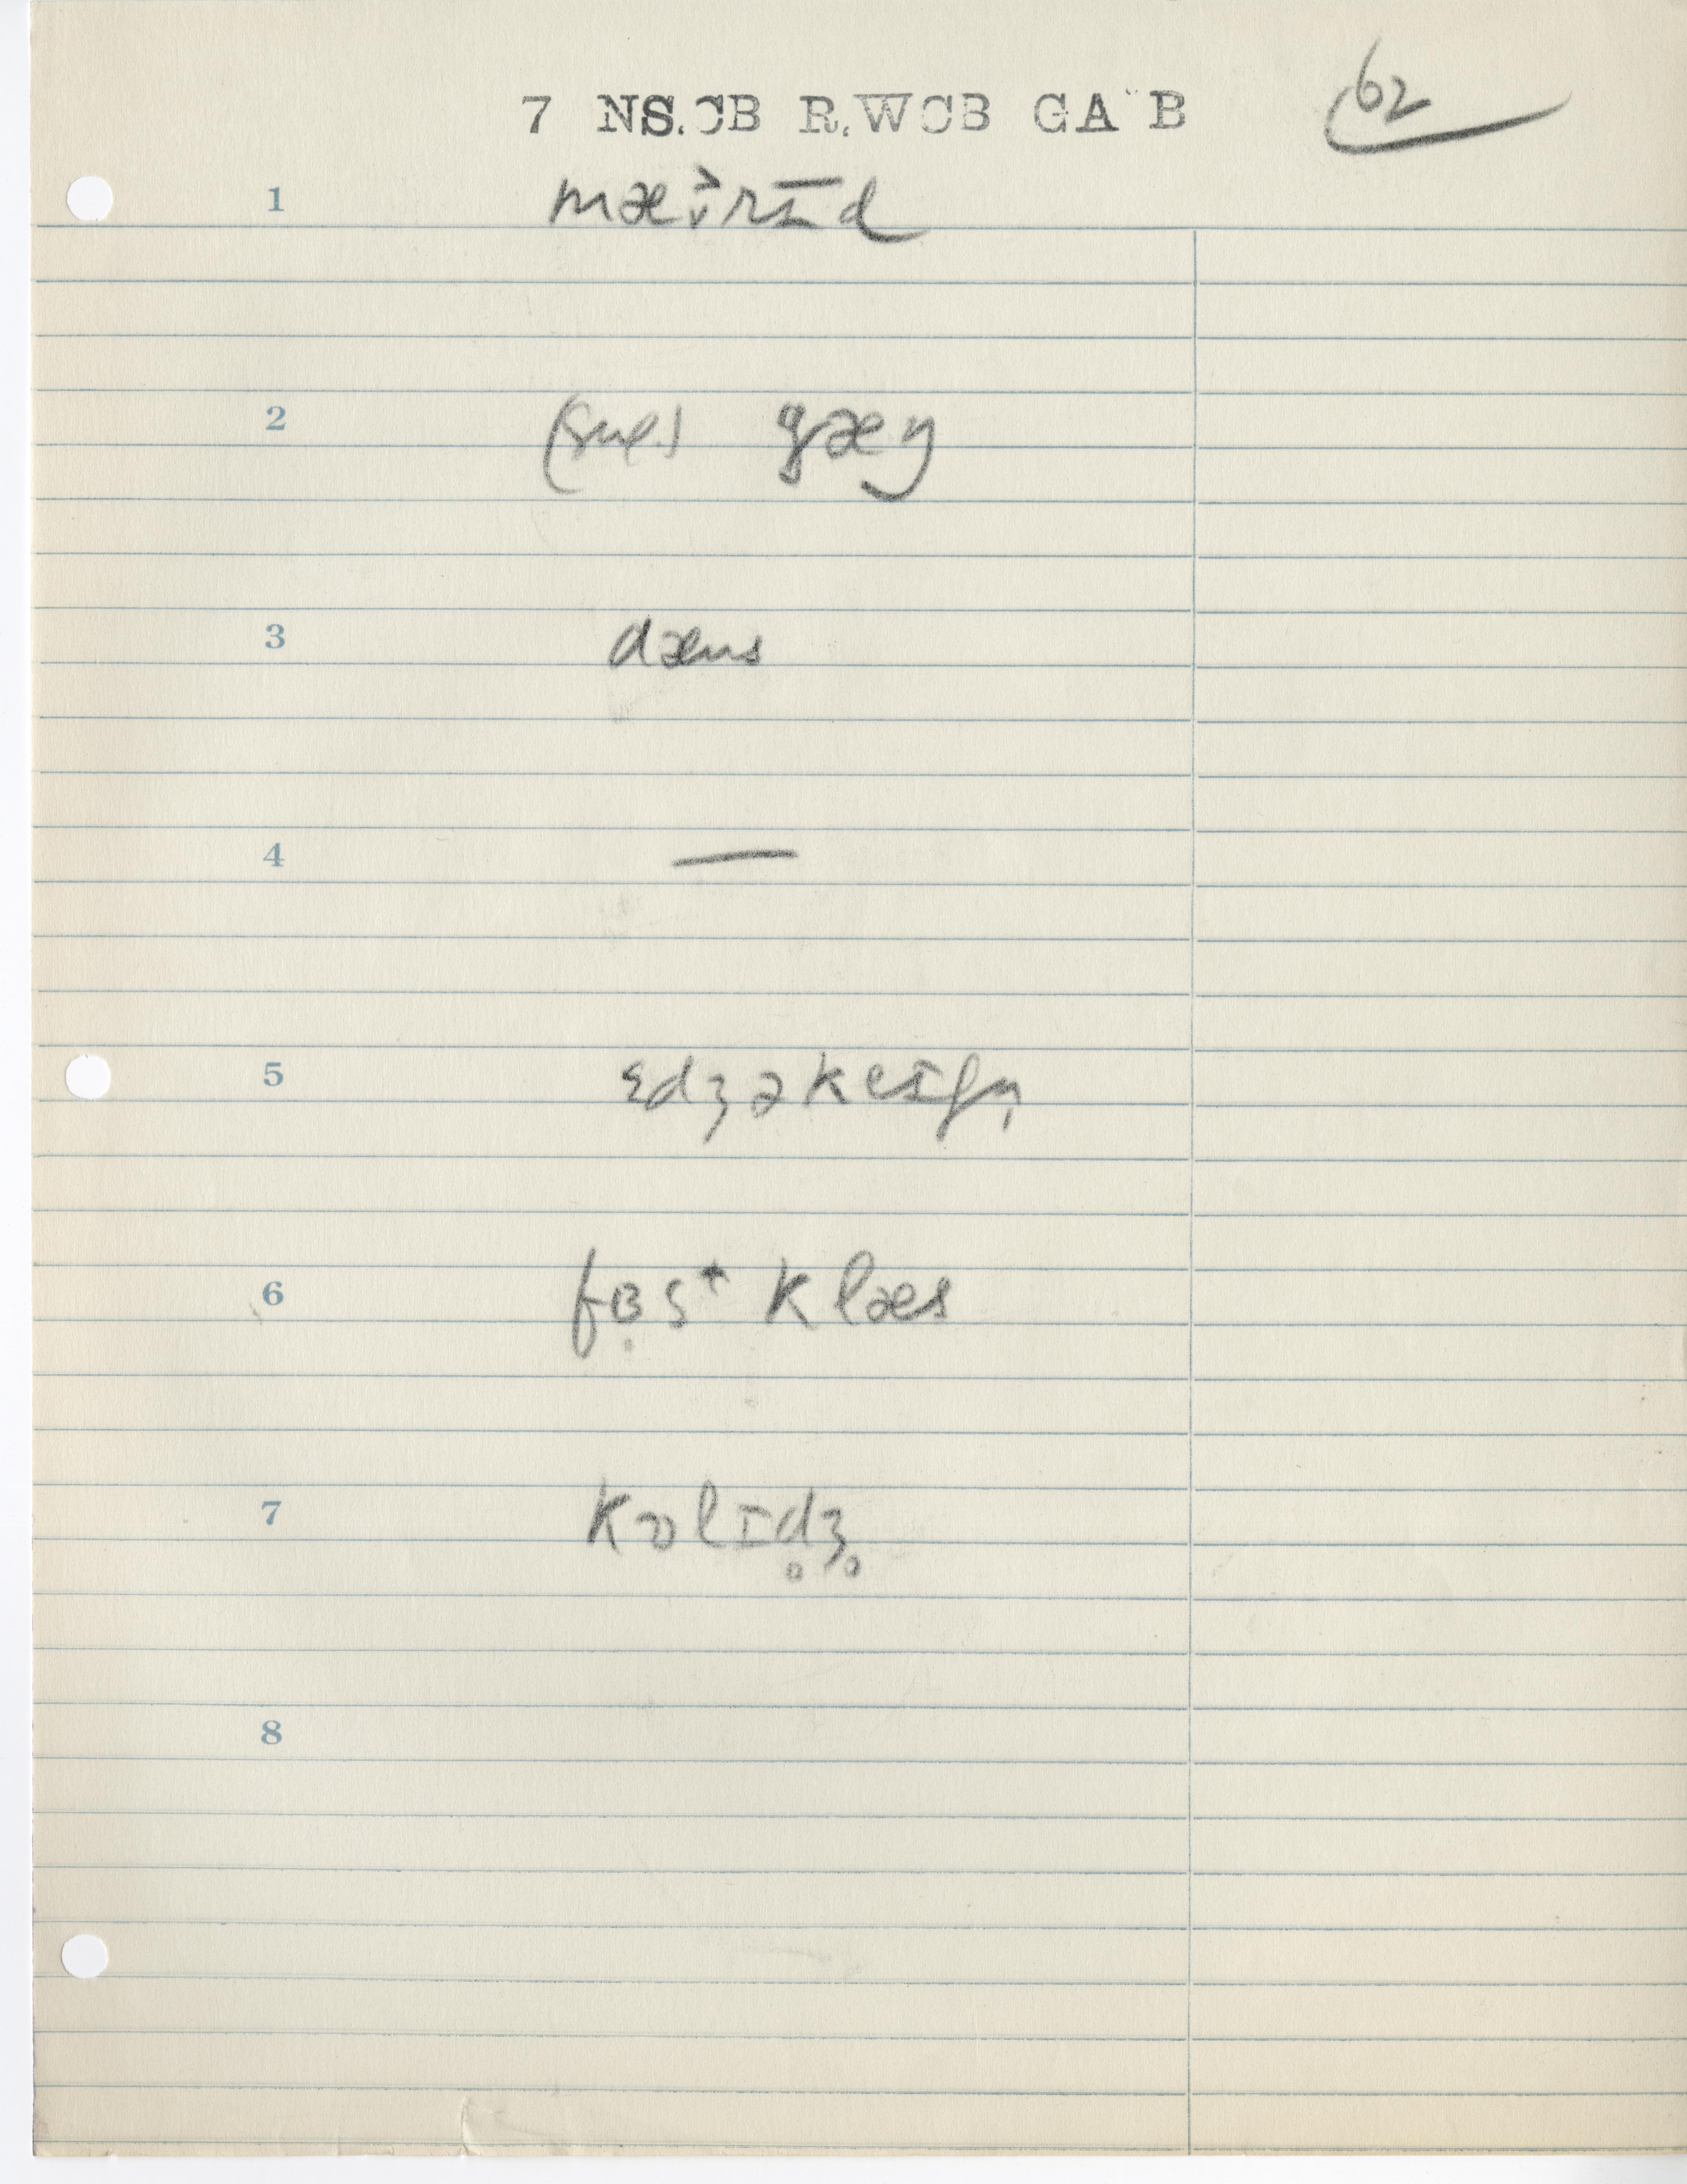 7 NS.CB R.WCB GA B
62
1 mæ˞rɪ̅d
2 (sug.) gæŋ
3 dæns
4 —
5 ɛdʒəkeɪʃn̩
6 fɜ̣s↑ klæs
7 kɒlɪd̥ʒ̥
8